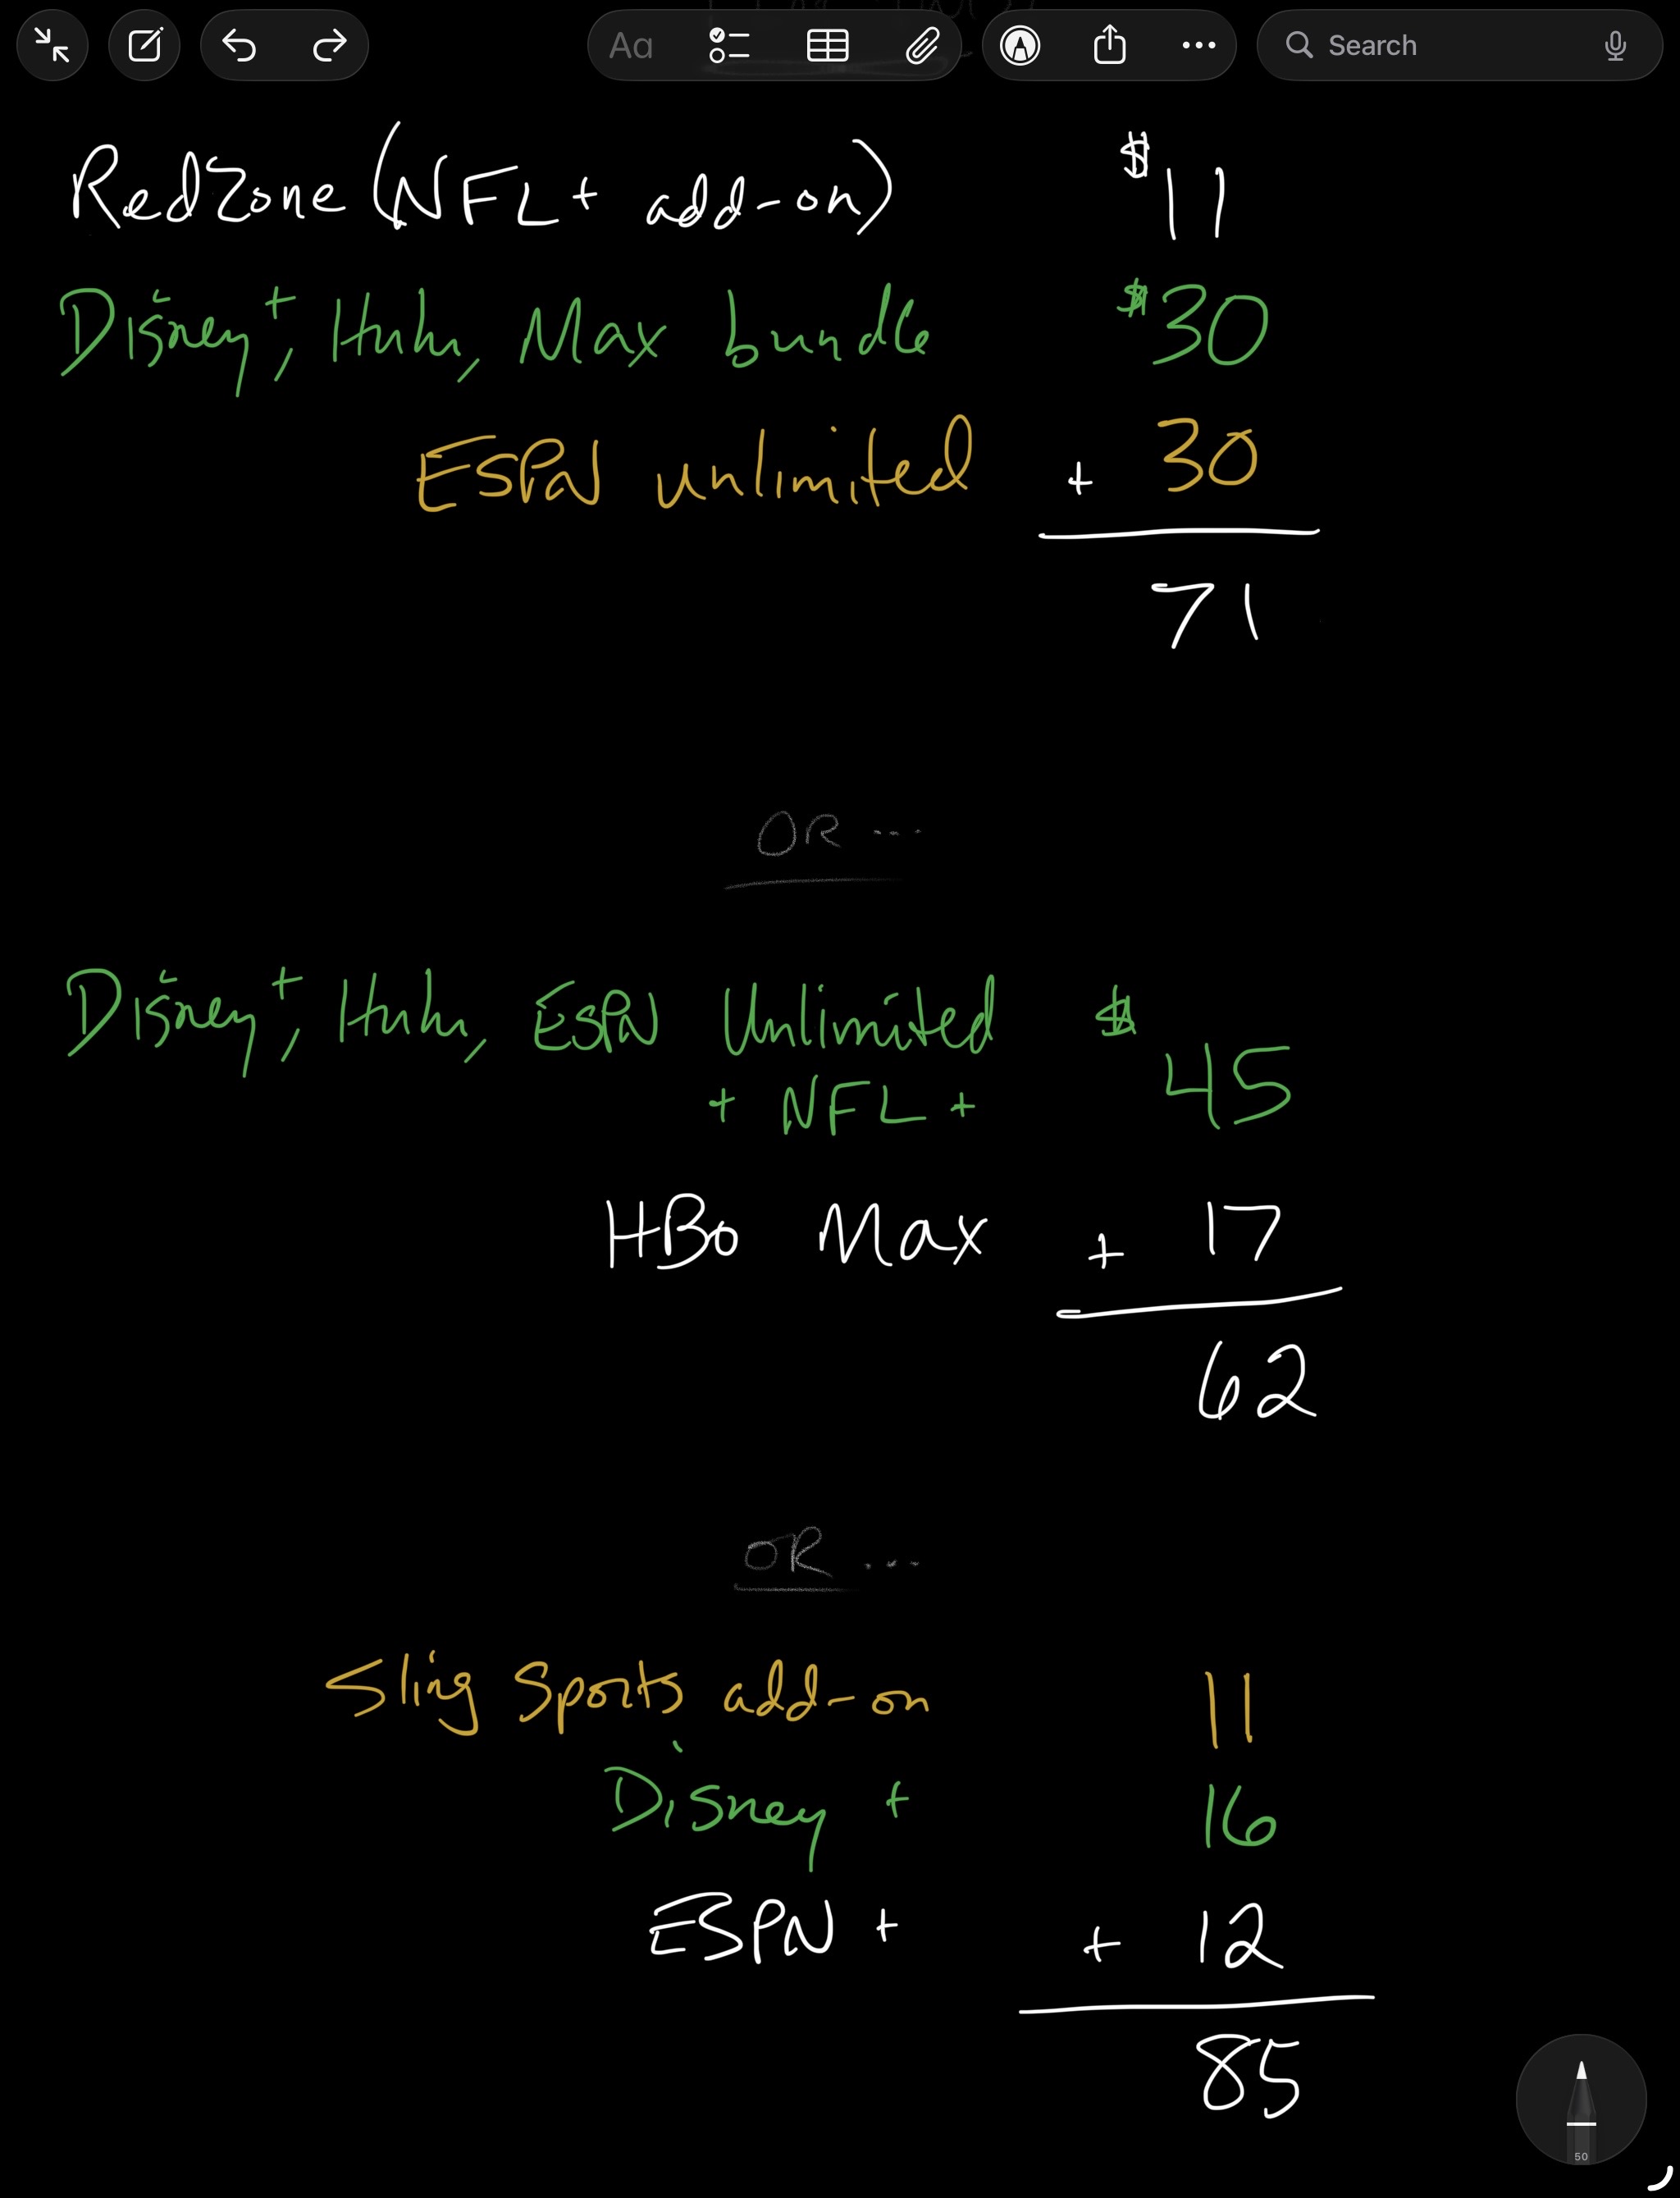 Aa
Search
RedZone (NFL+ add-on) $11
Disney+, Hulu, Max bundle $30
ESPN unlimited + 30
71
OR ...
Disney+, Hulu, ESPN Unlimited $
+ NFL + 45
HBO Max + 17
62
OR ...
Sling Sports add-on 11
Disney + 16
ESPN + + 12
85
50